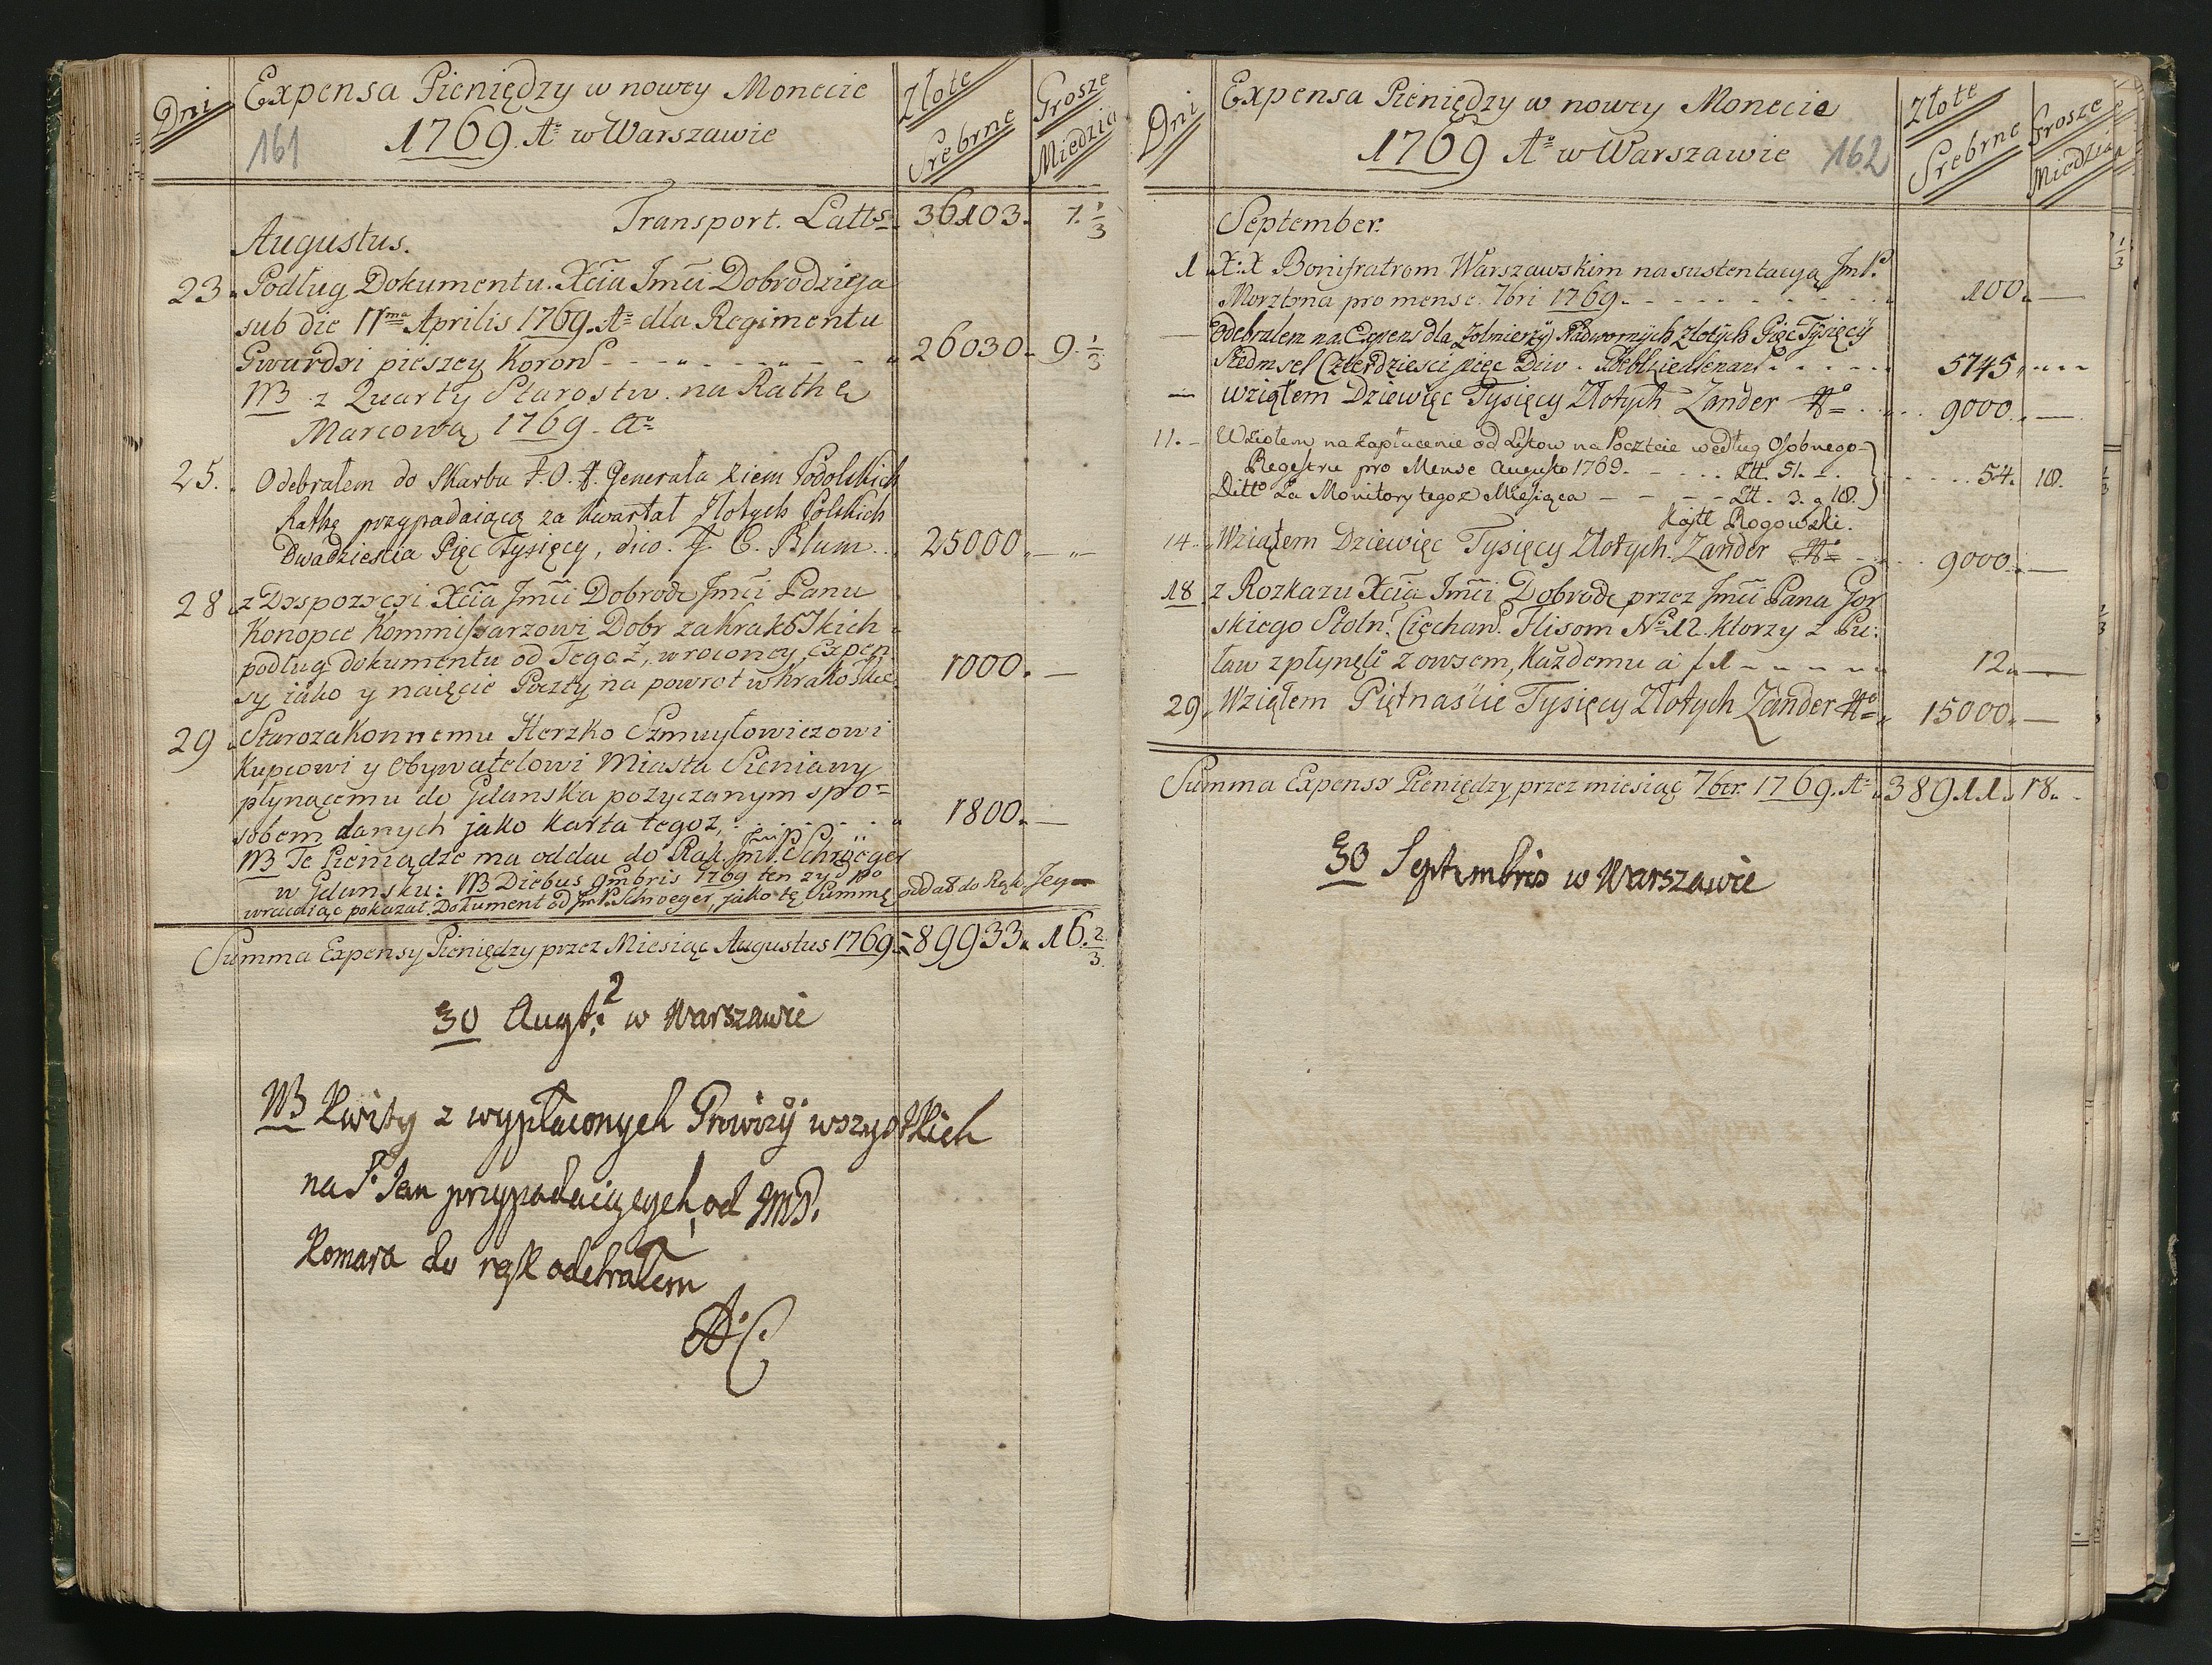 Dni
Expensa Pieniędzy w nowey Monecie
161
1769. Ao w Warszawie
Złote
Srebrne
Grosze
Miedzia
Transport. Latts. 36103. 7. 1/3
Augustus.
23. Podług Dokumentu. Xcia Jmci Dobrodzieja
sub die 11ma Aprilis 1769. Ao dla Regimentu
Gwardri pieszey Koron 26030. 9. 1/3
NB z Quarty Starostw. na Rathę
Marcową 1769. Ao
25. Odebrałem do Skarbu J.O.X. Generała Ziem Podolskich
Rathę przypadaiącą za kwartał Złotych Polskich
Dwadziescia Pięc Tysięcy, dico. J C. Blum 25000.
28 z Dyspozycyi Xcia Jmci Dobrodz Jmci Panu
Konopce Kommissarzowi Dobr zakrakoskich
podług dokumentu od Tegoż, wroconey Expen
sy iako y naięcie Poczty na powrot w krakoskie. 1000.
29. Starozakonnemu Herzko Szmuylowiczowi
Kupcowi y Obywatelowi Miasta Sieniawy
płynącemu do Gdanska pożyczanym spo=
sobem danych jako karta tegoz, 1800.
NB Te Pieniądze ma oddac do Rąk Jmci P. Schröeger
w Gdansku: NB Diebus 9mbris 1769 ten zyd po
wracaiąc pokazał Dokument od Jmci P. Schroeger, jako tę Summę oddał do Rąk Jego
Summa Expensy Pieniędzy przez Miesiąc Augustus 1769. 89933. 16. 2/3
30 Augt: w Warszawie
NB Kwity z wypłaconych Prowizÿ wszystkich
na S. Jan przypadaiących, od JMP.
Komara do rąk odebrałem
AC
Dni
Expensa Pieniędzy w nowey Monecie
1769 Ao w Warszawie
162
Złote
Srebrne
Grosze
Miedzia
September.
1. X:X Bonifratrom Warszawskim na sustentacyą JmP.
Morztyna pro mense 7bri 1769. 100.
Odebrałem na Expens dla Żołnierzy Nadwornych Złotych Pięc Tysięcy
Siedmset Czterdziesci pięc 5745.
wziąłem Dziewięc Tysięcy Złotych Zander 9000.
11. Wziołem na zapłacenie od Listow na Poczcie według Osobnego
Regestru pro Mense Augusto 1769. Złt. 51.
Ditto Za Monitory tegoz Miesiąca Złt. 3. g 18. 54. 18.
Kajt Rogowski.
14. Wziąłem Dziewięc Tysięcy Złotych. Zander 9000.
18 z Rozkazu Xcia Jmci Dobrodz przez Jmci Pana Gor
skiego Stoln. Ciechan. Flisom No 12. ktorzy z Pu:
ław zpłynęli z owsem, Każdemu a f 1 12.
29. Wziąłem Piętnascie Tysięcy Złotych Zander 15000.
Summa Expensy Pieniędzy przez miesiąc 7ber. 1769. Ao 38911. 18.
30 Septembris w Warszawie